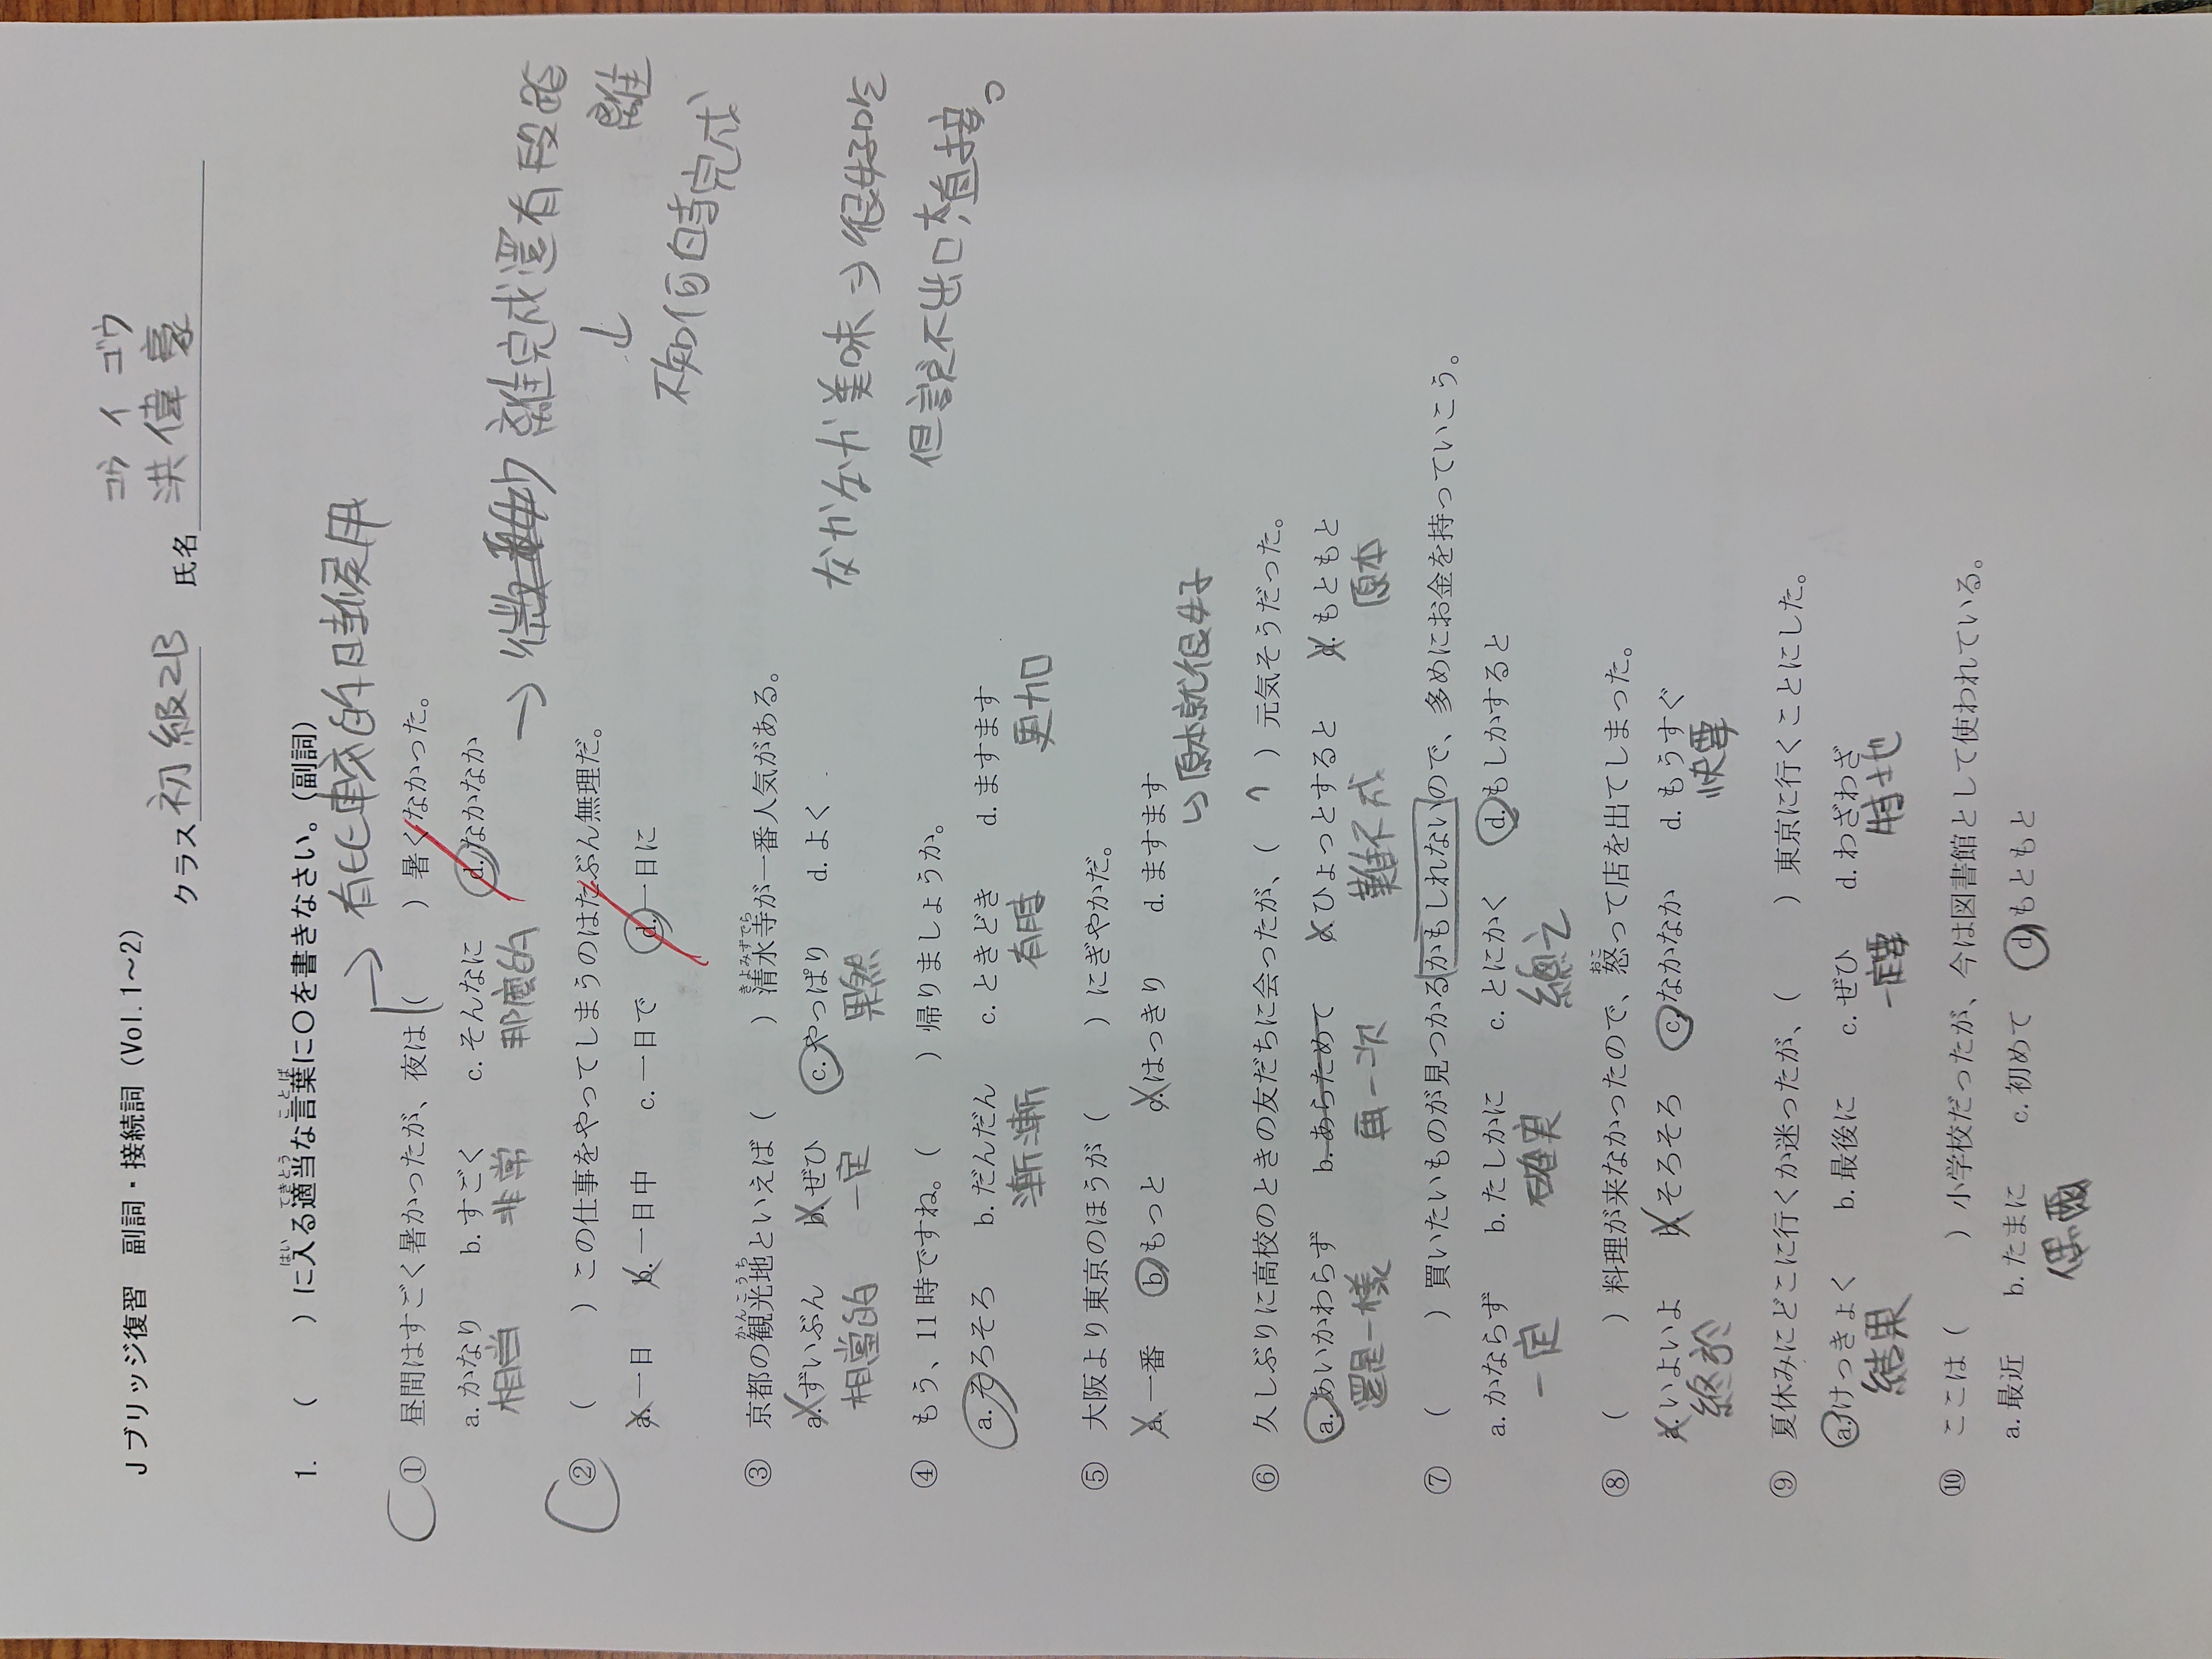 Jブリッジ復習 副詞・接続詞 (Vol.1～2)
コウ イ ゴウ
クラス 初級2B 氏名 洪偉豪
はい てきとう ことば
1. ( )に入る適当な言葉に○を書きなさい。(副詞)
→ 有比較的時候用
① 昼間はすごく暑かったが、夜は( )暑くなかった。
a. かなり b. すごく c. そんなに d. なかなか
相当 非常 那麼的
→ 離完成還有段距離
↓
不知何時完成
② ( )この仕事をやってしまうのはたぶん無理だ。
a. 一日 b. 一日中 c. 一日で d. 一日に
かんこうち きよみずでら
③ 京都の観光地といえば( )清水寺が一番人気がある。
a. ずいぶん b. ぜひ c. やっぱり d. よく
相當的 一定 果然
なかなか美味→很好吃
但說不出口太直接。
④ もう、11時ですね。( )帰りましょうか。
a. そろそろ b. だんだん c. ときどき d. ますます
漸漸 有時 更加
⑤ 大阪より東京のほうが( )にぎやかだ。
a. 一番 b. もっと c. はっきり d. ますます
↳原本就很好
⑥ 久しぶりに高校のときの友だちに会ったが、( )元気そうだった。
a. あいかわらず b. あらためて c. ひょっとすると d. もともと
還是一樣 再一次 難不成 原本
⑦ ( )買いたいものが見つかるかもしれないので、多めにお金を持っていこう。
a. かならず b. たしかに c. とにかく d. もしかすると
一定 確実 總之
おこ
⑧ ( )料理が来なかったので、怒って店を出てしまった。
a. いよいよ b. そろそろ c. なかなか d. もうすぐ
終於 快要
⑨ 夏休みにどこに行くか迷ったが、( )東京に行くことにした。
a. けっきょく b. 最後に c. ぜひ d. わざわざ
結果 一定要 特地
⑩ ここは( )小学校だったが、今は図書館として使われている。
a. 最近 b. たまに c. 初めて d. もともと
偶爾